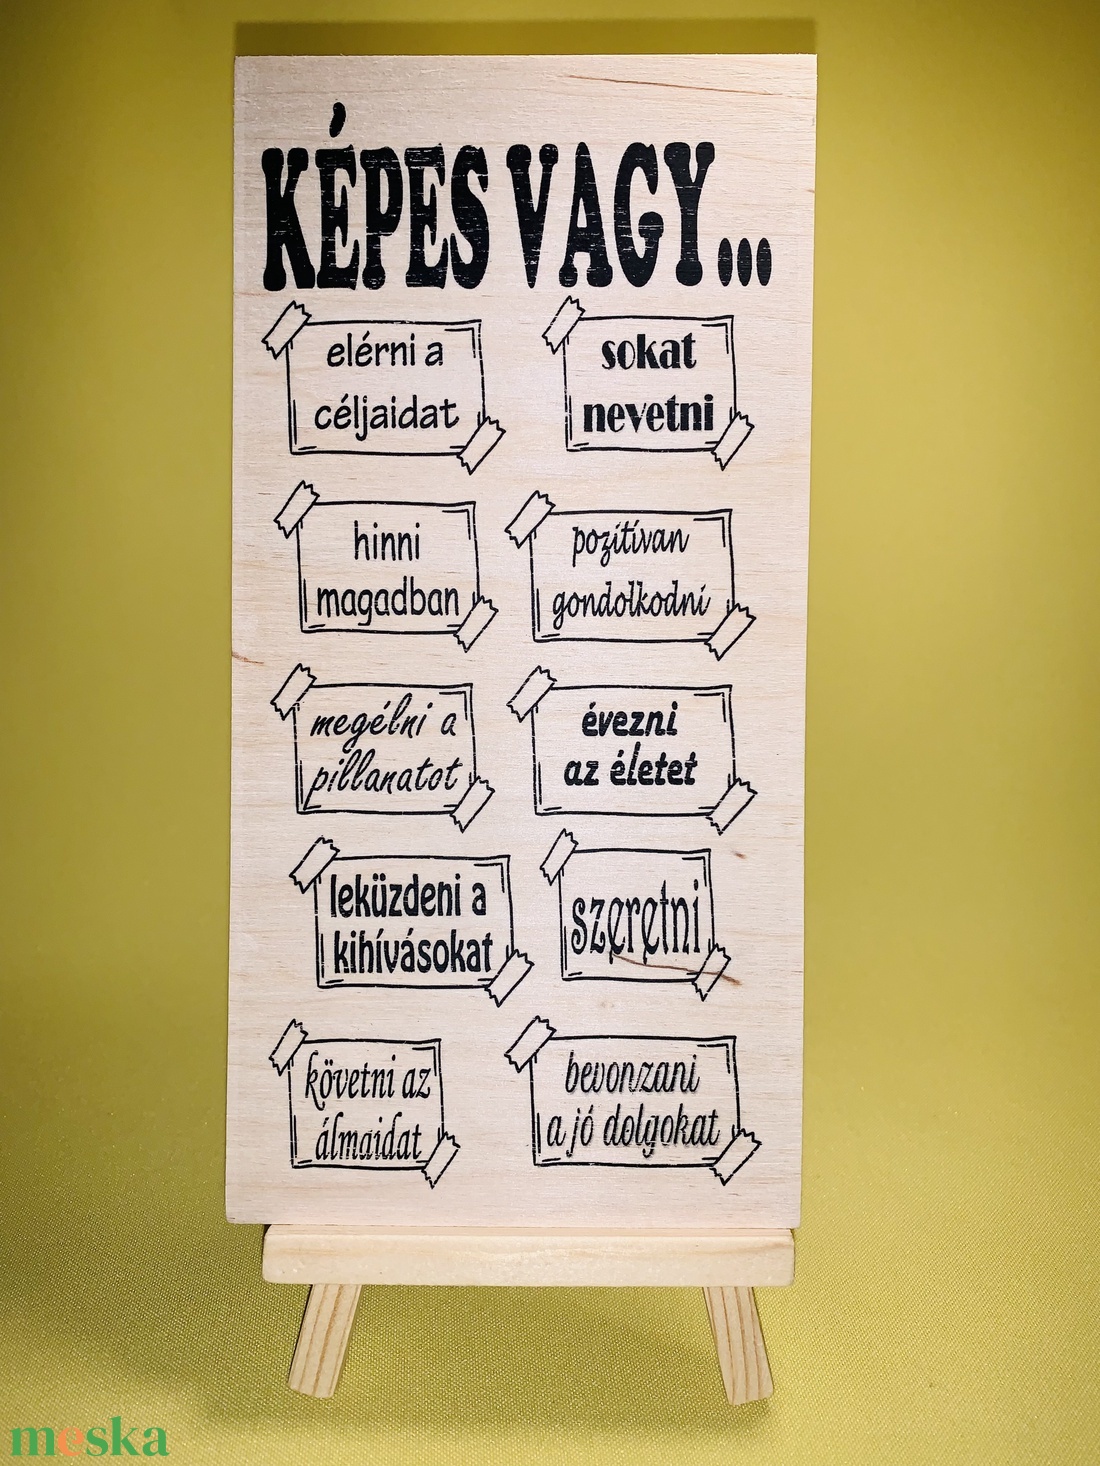 KÉPES VAGY...
elérni a
céljaidat
sokat
nevetni
hinni
magadban
pozitívan
gondolkodni
megélni a
pillanatot
évezni
az életet
leküzdeni a
kihívásokat
szeretni
követni az
álmaidat
bevonzani
a jó dolgokat
meska